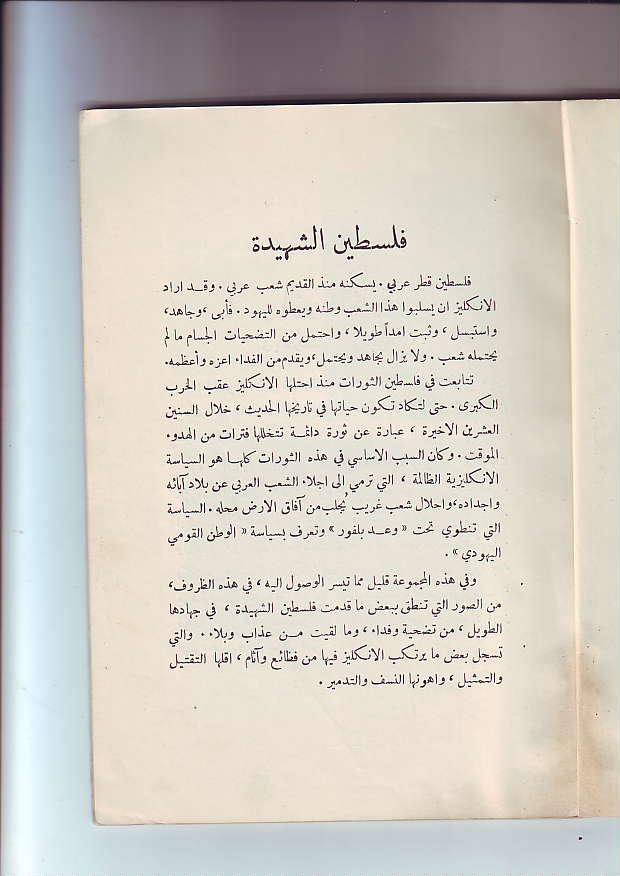 فلسطين الشهيدة
فلسطين قطر عربي . يسكنه منذ القديم شعب عربي . وقد اراد
الانكليز ان يسلبوا هذا الشعب وطنه ويعطوه لليهود . فأبى ، وجاهد ،
واستبسل ، وثبت امداً طويلا ، واحتمل من التضحيات الجسام ما لم
يحتمله شعب . ولا يزال يجاهد ويحتمل ، ويقدم من الفداء اعزه وأعظمه .
تتابعت في فلسطين الثورات منذ احتلها الانكليز عقب الحرب
الكبرى . حتى لتكاد تكون حياتها في تاريخها الحديث ، خلال السنين
العشرين الاخيرة ، عبارة عن ثورة دائمة تتخللها فترات من الهدوء
الموقت . وكان السبب الاساسي في هذه الثورات كلها هو السياسة
الانكليزية الظالمة ، التي ترمي الى اجلاء الشعب العربي عن بلاد آبائه
واجداده ، واحلال شعب غريب يُجلب من آفاق الارض محله . السياسة
التي تنطوي تحت « وعد بلفور » وتعرف بسياسة « الوطن القومي
اليهودي » .
وفي هذه المجموعة قليل مما تيسر الوصول اليه ، في هذه الظروف ،
من الصور التي تنطق ببعض ما قدمت فلسطين الشهيدة ، في جهادها
الطويل ، من تضحية وفداء ، وما لقيت من عذاب وبلاء . والتي
تسجل بعض ما يرتكب الانكليز فيها من فظائع وآثام ، اقلها التقتيل
والتمثيل ، واهونها النسف والتدمير .